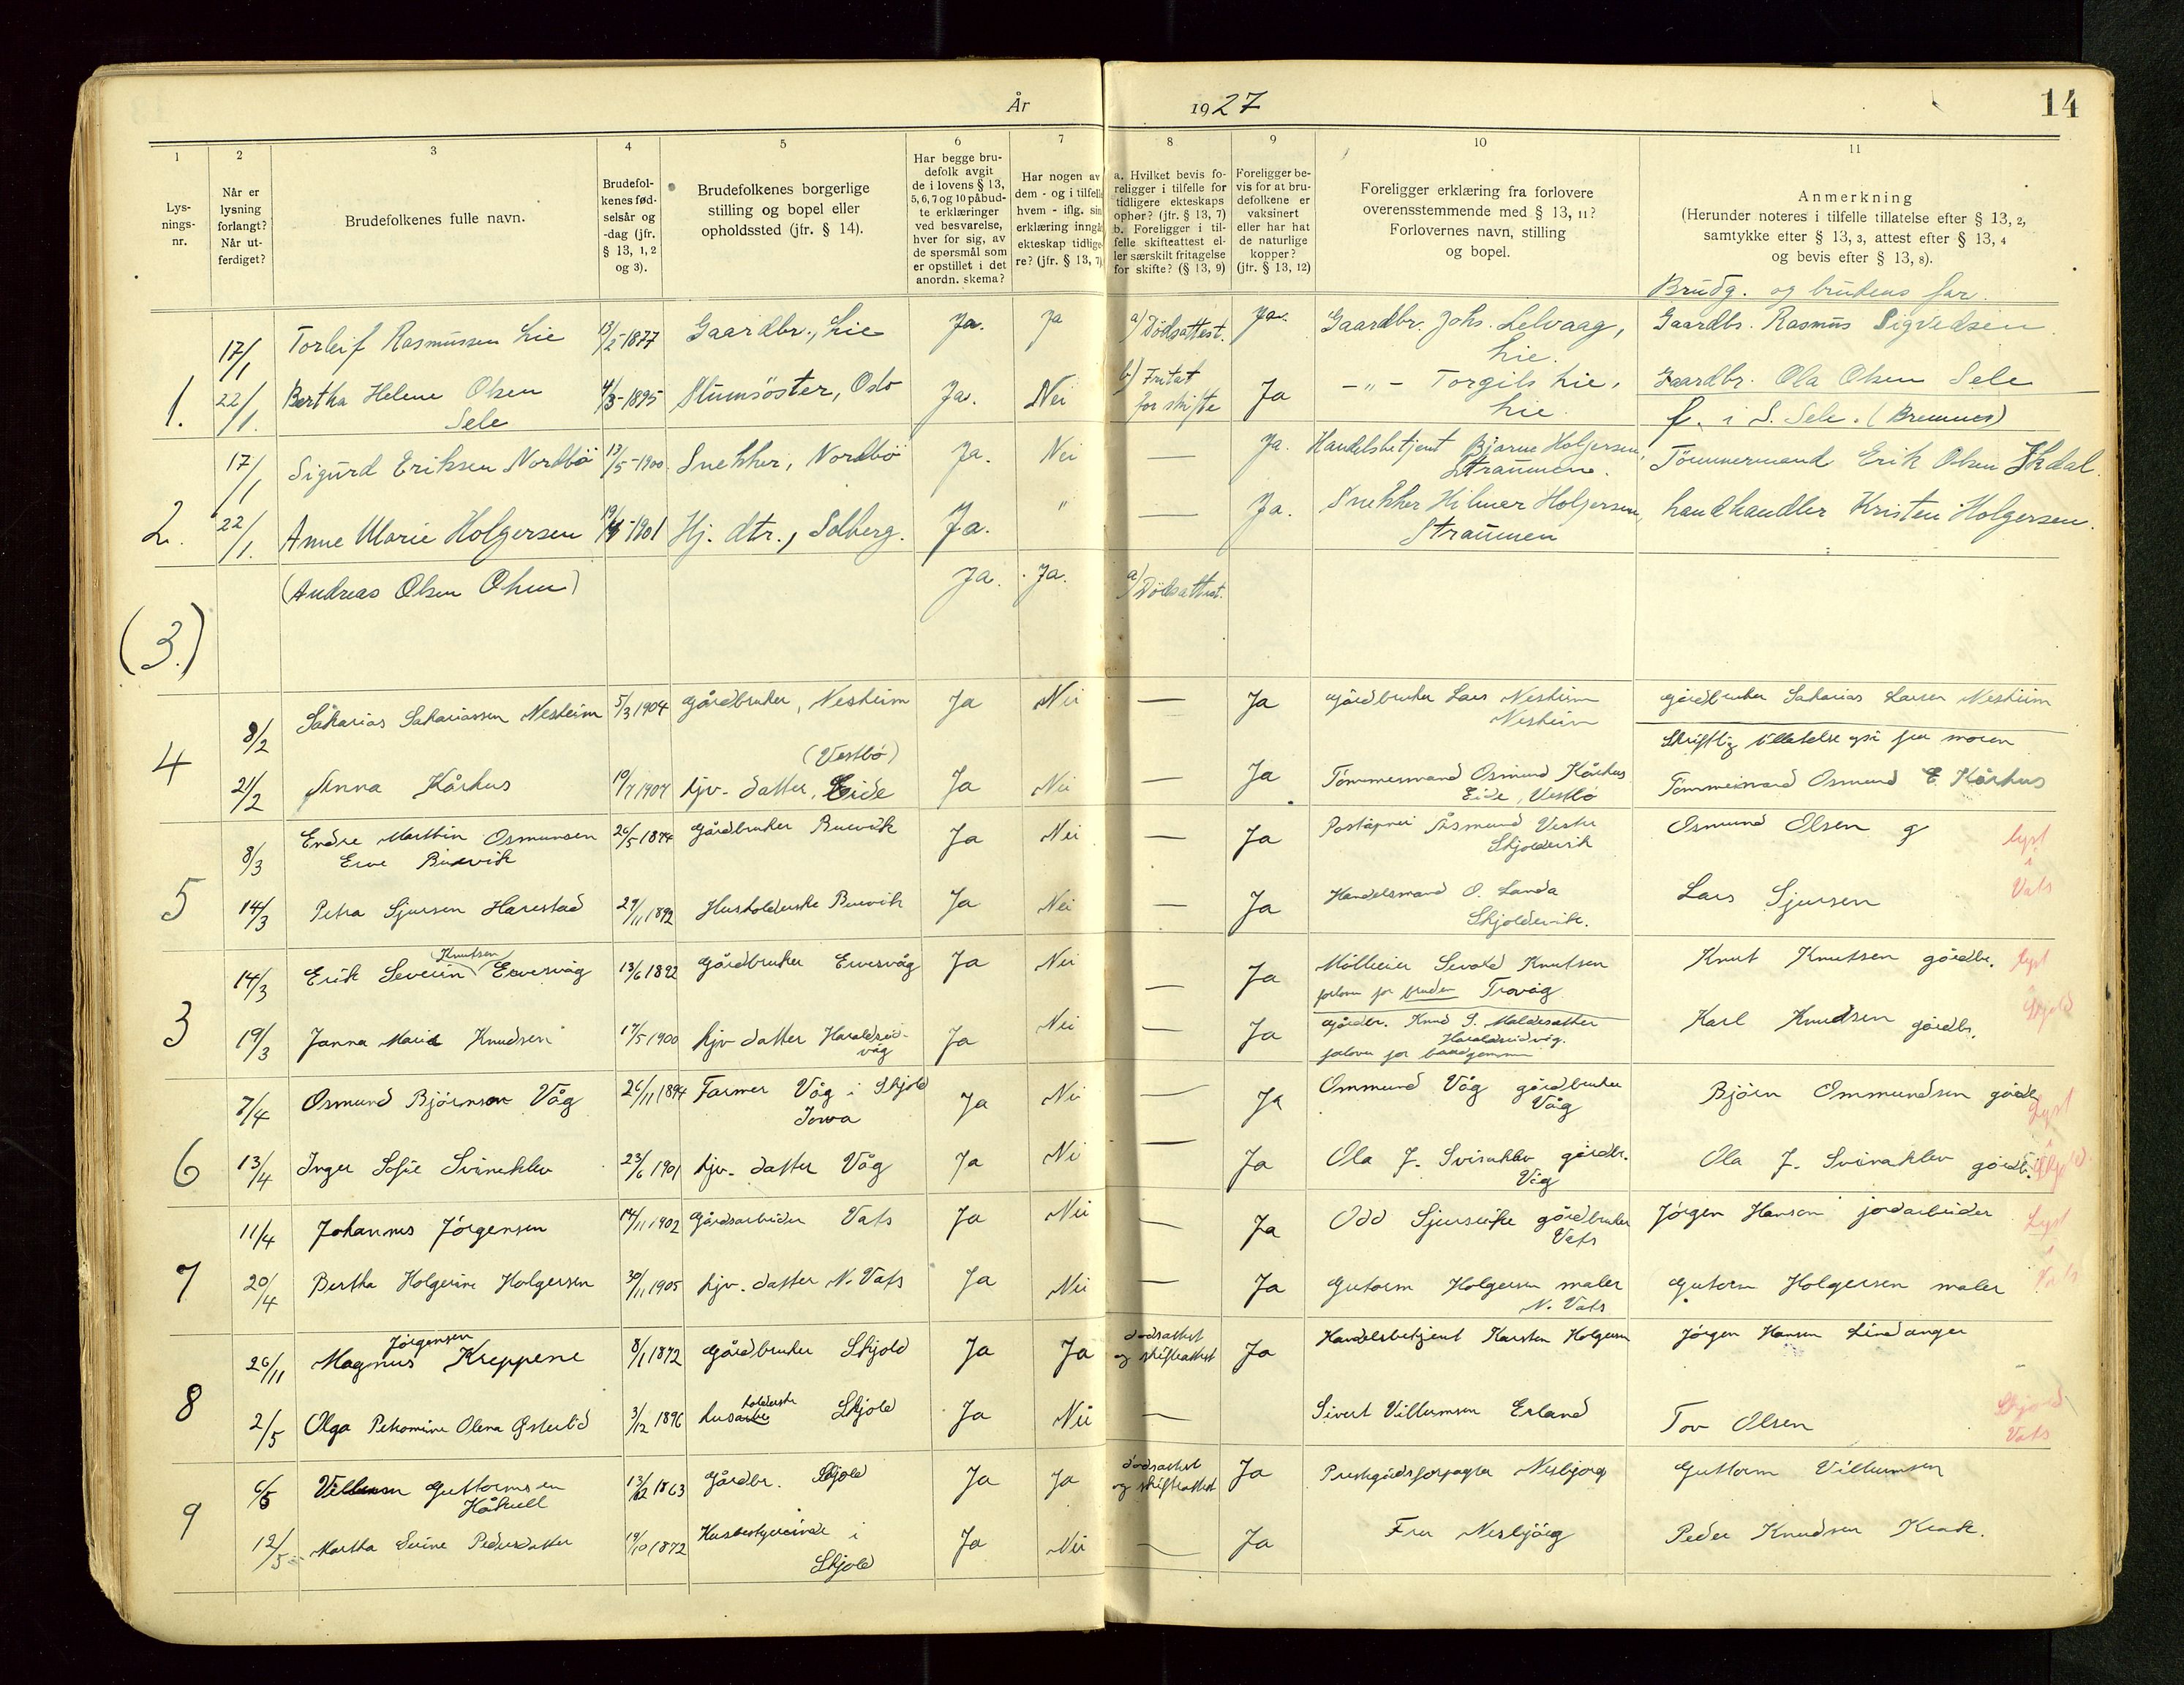 År 1927
14
1 2 3 4 5 6 7 8 9 10 11
Lys-
nings-
nr.
Når er
lysning
forlangt?
Når ut-
ferdiget?
Brudefolkenes fulle navn.
Brudefol-
kenes fød-
selsår og
-dag (jfr.
§ 13, 1, 2
og 3).
Brudefolkenes borgerlige
stilling og bopel eller
opholdssted (jfr. § 14).
Har begge bru-
defolk avgit
de i lovens § 13,
5, 6, 7 og 10 påbud-
te erklæringer
ved besvarelse,
hver for sig, av
de spørsmål som
er opstillet i det
anordn. skema?
Har nogen av
dem - og i tilfelle
hvem - iflg. sin
erklæring inngå
ekteskap tidlige-
re? (jfr. § 13, 7)
a. Hvilket bevis fo-
religger i tilfelle for
tidligere ekteskaps
ophør? (jfr. § 13, 7)
b. Foreligger i til-
felle skifteattest el-
ler særskilt fritagelse
for skifte? (§ 13, 9)
Foreligger be-
vis for at bru-
defolkene er
vaksinert
eller har hat
de naturlige
kopper?
(jfr. § 13, 12)
Foreligger erklæring fra forlovere
overensstemmende med § 13, 11?
Forlovernes navn, stilling
og bopel.
Anmerkning
(Herunder noteres i tilfelle tillatelse efter § 13, 2,
samtykke efter § 13, 3, attest efter § 13, 4
og bevis efter § 13, 8).
Brudg. og brudens far.
17/1 Torleif Rasmussen Lie 13/2-1877 Gaardbr., Lie Ja. Ja a) Dödsattest. Ja. Gaardbr. Johs. Lelvaag, Gaardbr. Rasmus Sigvedsen
Lie.
1. 22/1. Bertha Helene Olsen 4/3-1895 Oslo Ja. Nei b) Fritat Ja -"- Torgils Lie, Gaardbr. Ola Olsen Sele
Sele for skifte Lie. f. i S. Sele. (Bremnes)
17/1 Sigurd Eriksen Nordbö 13/5-1900. Snekker, Nordbö Ja. Nei — Ja. Handelsbetjent Bjarne Holgersen, Tömmermand Erik Olsen
Straumene.
2. 22/1. Anne Marie Holgersen 1901 Hj. dtr., Solberg. Ja. " — Ja. Snekker Hilmer Holgersen, Landhandler Kristen Holgersen.
Straumen
(3.) (Andreas Olsen Ohm) Ja. Ja. a) Dödsattest.
8/2 Sakarias Sakariassen Nesheim 5/3 1904 Gårdbruker, Nesheim Ja Nei — Ja Gårdbruker Lars Nesheim Gårdbruker Sakarias Larsen Nesheim
Nesheim
(Vestbö) Skriftlig tillatelse også fra moren
4 21/2 Anna Kårhus 19/7 1907 hjv. datter, Eide Ja Nei — Ja Tömmermand Osmund Kårhus Tömmermand Osmund E. Kårhus
Eide, Vestbö
8/3 Endre Marthin Osmunsen 26/5 1874 Gårdbruker Buevik Ja Nei — Ja Poståpner Åsmund Vestre Osmund Olsen g lyst
Erve Buevik Skjoldevik i
5 14/3 Petra Sjursen Harestad 29/11 1892 Husholderske Buevik Ja Nei — Ja Handelsmand O. Landa Lars Sjursen Vats
Skjoldevik.
Knutsen
14/3 Erik Severin Ervesvåg 13/6 1892 Gårdbruker Ervesvåg Ja Nei — Ja Möllereier Sevald Knutsen Knut Knutsen gårdbr. lyst
forlover for bruden Trovåg i
3 19/3 Janna Marie Knudsen 17/5 1900 hjv datter Haraldseid- Ja Nei — Ja Gårdbr. Knud S. Maldesætter Karl Knudsen gårdbr. Skjold
våg Haraldseidvåg.
forlover for brudgommen
7/4 Osmund Björnson Våg 26/11 1894 Farmer Våg i Skjold Ja Nei — Ja Ommund Våg gårdbruker Björn Ommundsen gårdb. Lyst
Iowa Våg i
6 13/4 Inger Sofie Svinaklev 23/6 1901 hjv. datter Våg Ja Nei — Ja Ola J. Svinaklev gårdbr. Ola J. Svinaklev gårdb. Skjold.
Våg
11/4 Johannes Jörgensen 14/11 1902 Gårdsarbeider Vats Ja Nei — Ja Odd Sjurseike gårdbruker Jörgen Hanson jordarbeider Lyst
Vats i
7 20/4 Bertha Holgerine Holgersen 30/11 1905 hjv. datter N. Vats Ja Nei — Ja Gutorm Holgersen maler Gutorm Holgersen maler Vats
N. Vats
Jörgensen
26/11 Magnus Kreppene 8/1 1872 Gårdbruker Skjold Ja Ja dødsattest Ja Handelsbetjent Karsten Holgersen Jörgen Hansen Lindanger
og skifteattest
holderske
8 2/5 Olga Petromine Olena Østerlid 3/12 1896 hus Skjold Ja Nei — Sivert Villumsen Erland Tov Olsen Skjold
Vats
6/5 Guttormsen 13/12 1863 Gårdbr. Skjold Ja Ja dødsattest Ja Prestgårdsforpagter Nesbjørg Guttorm Villumsen
Håkull og skifteattest
9 12/5 Martha Serine Pedersdatter 19/10 1872 Husbestyrerinde i Ja Nei — Ja Fru Nesbjörg Peder Knudsen
Skjold